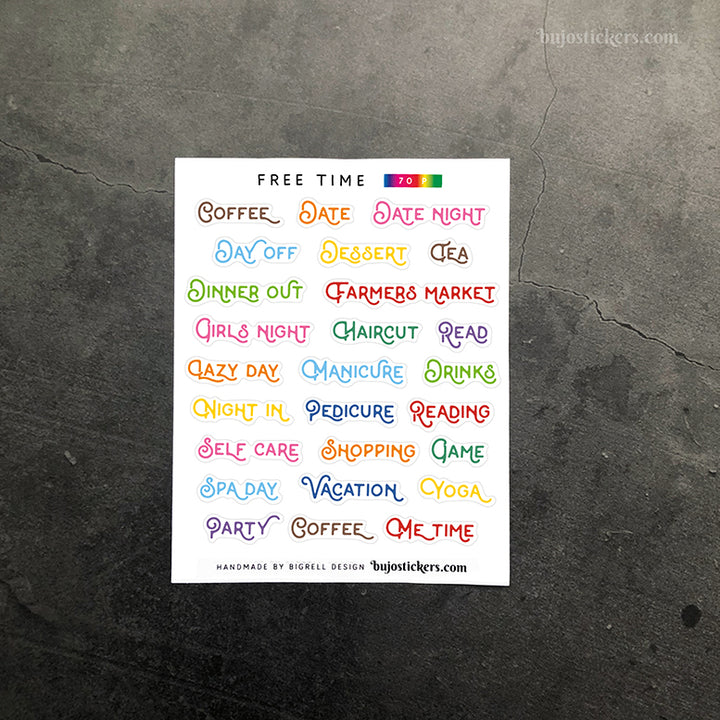 bujostickers.com
FREE TIME 70 P
COFFEE DATE DATE NIGHT
DAY OFF DESSERT TEA
DINNER OUT FARMERS MARKET
GIRLS NIGHT HAIRCUT READ
LAZY DAY MANICURE DRINKS
NIGHT IN PEDICURE READING
SELF CARE SHOPPING GAME
SPA DAY VACATION YOGA
PARTY COFFEE ME TIME
HANDMADE BY BIGRELL DESIGN bujostickers.com